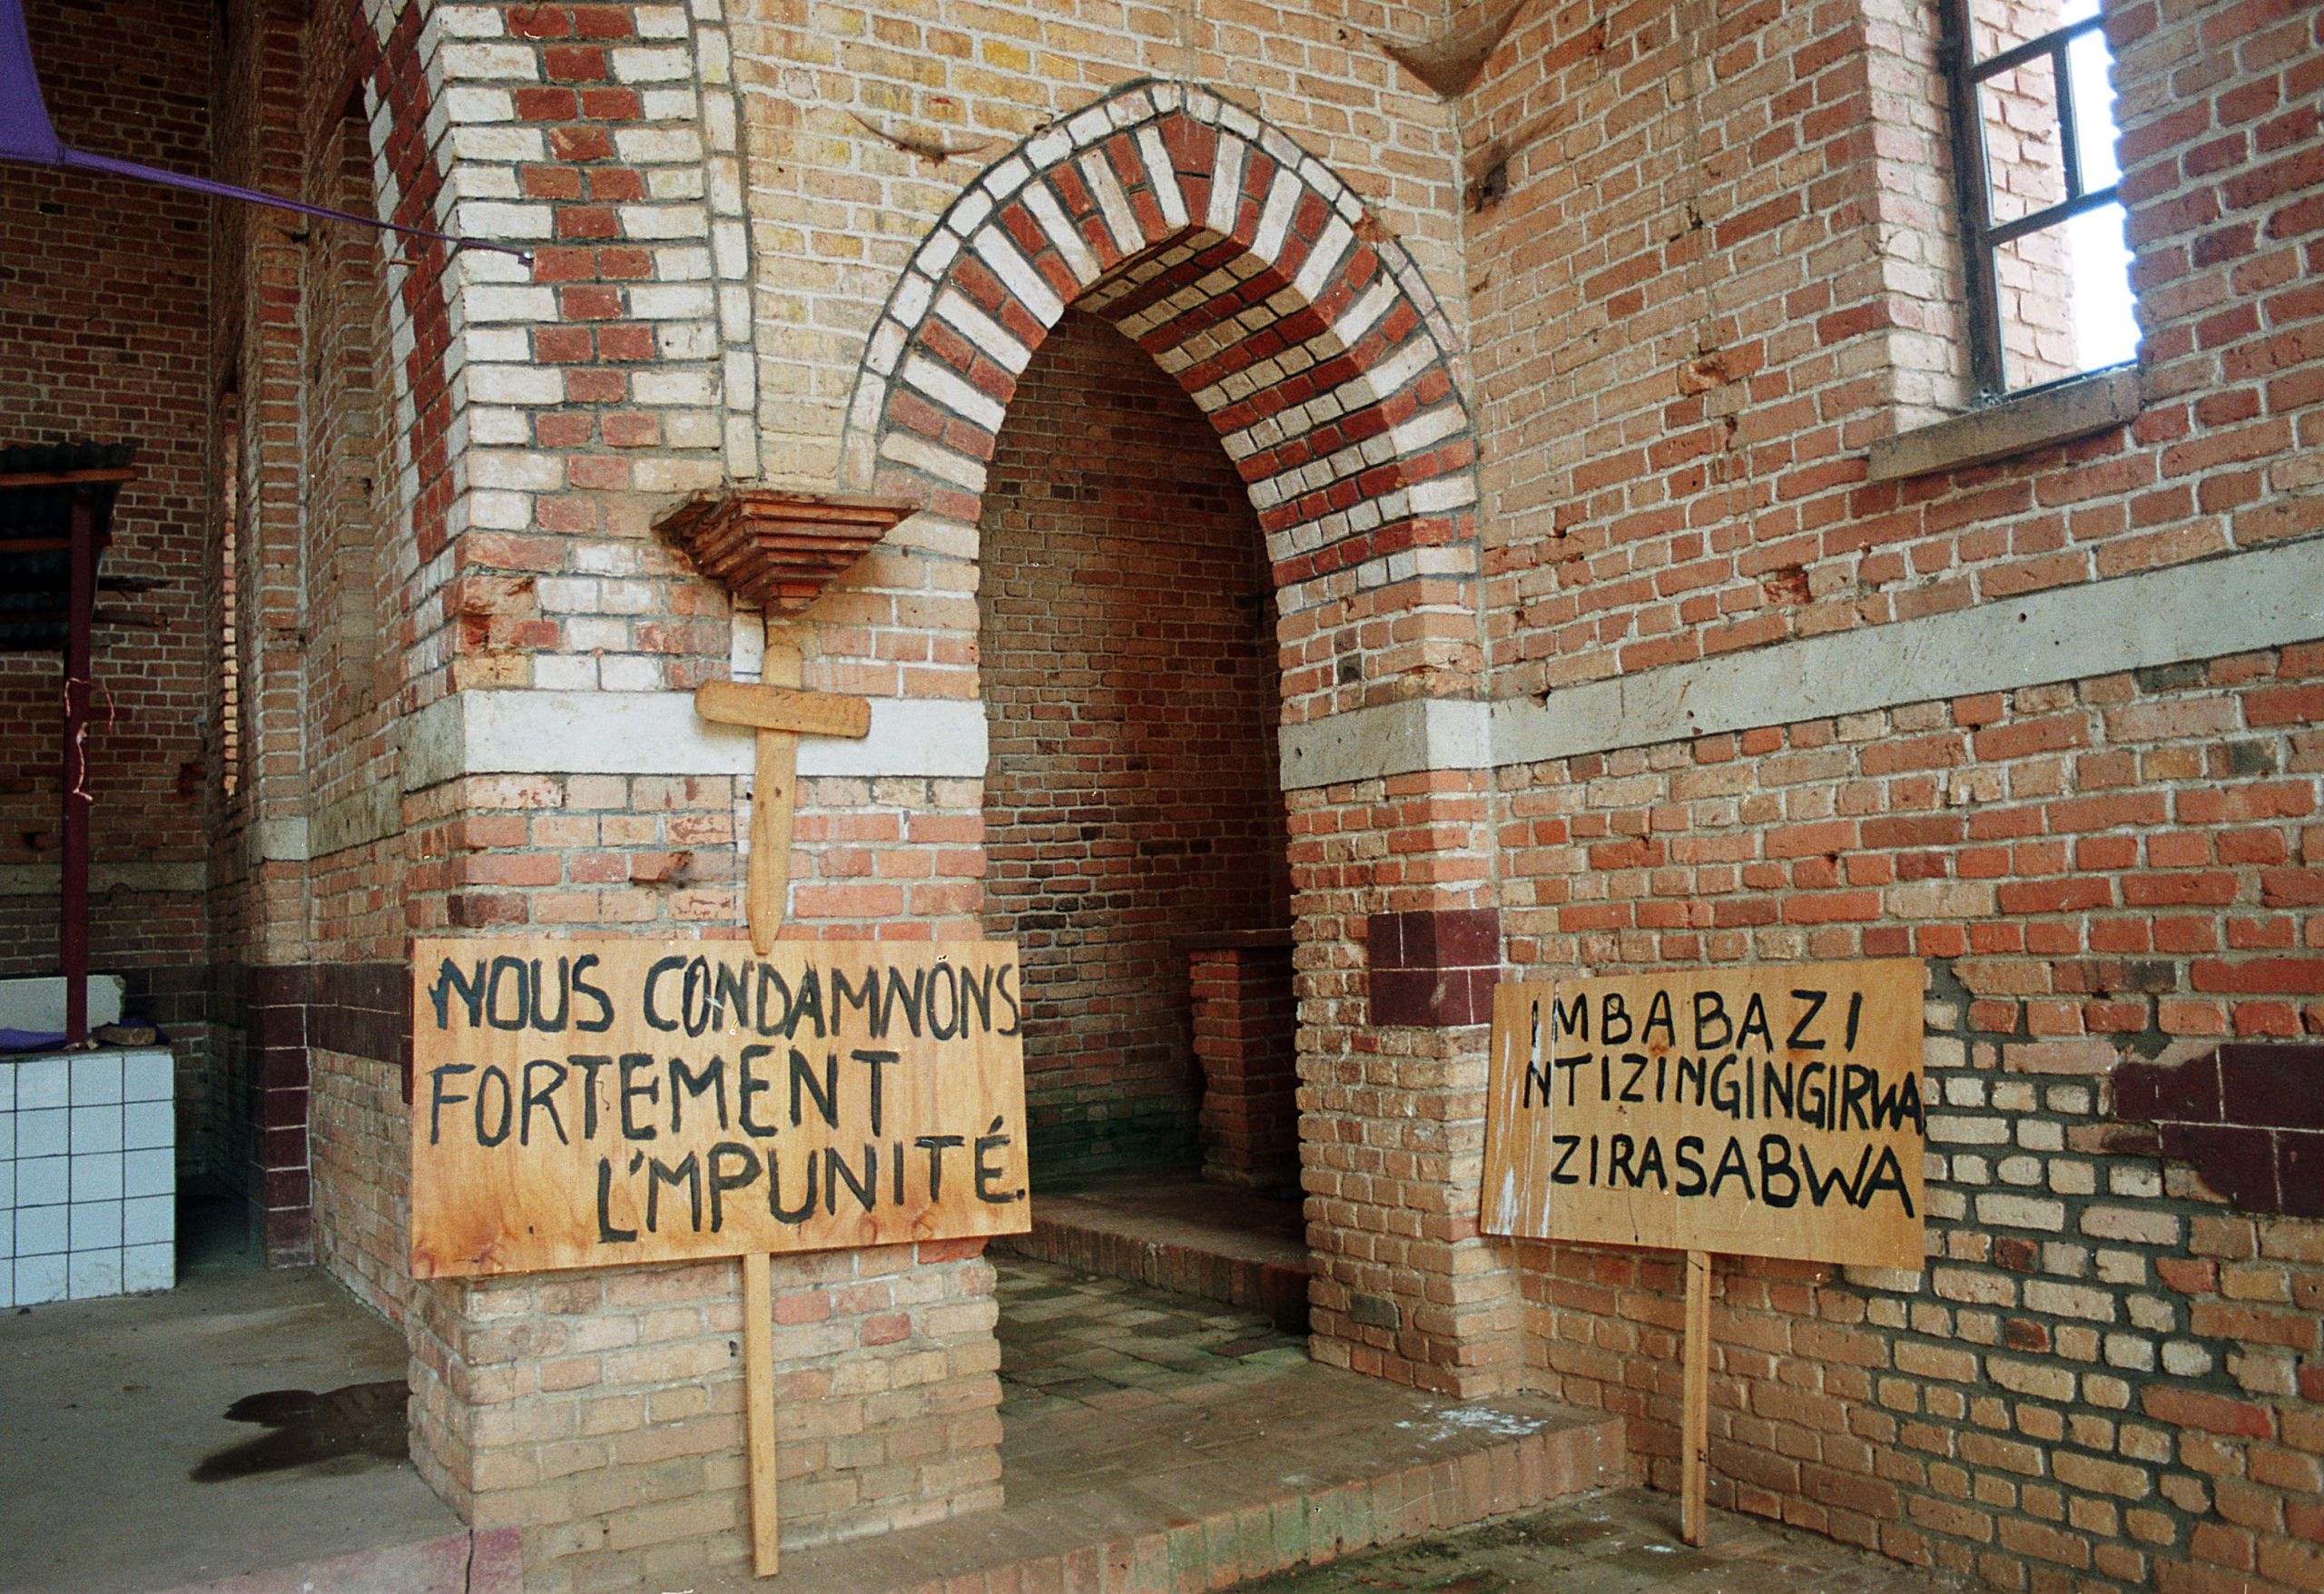 NOUS CONDAMNONS
FORTEMENT
L'MPUNITÉ.
IMBABAZI
NTIZINGINGIRWA
ZIRASABWA